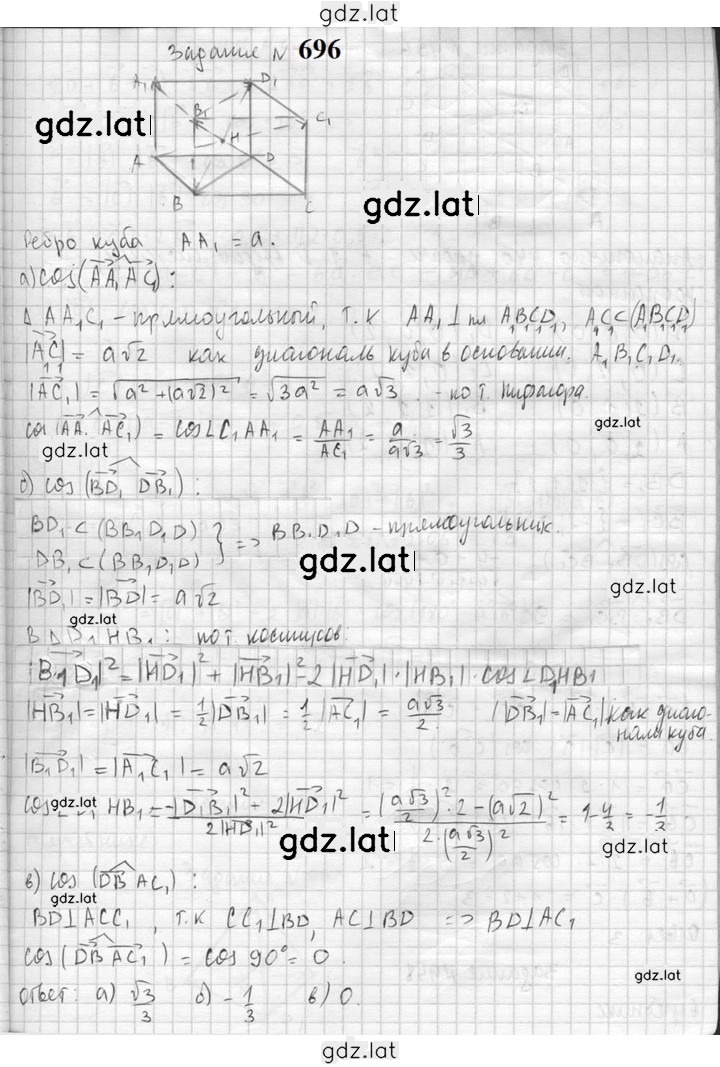 gdz.lat
Задание N 696
A₁ D₁
B₁ C₁
H
A D
B C
gdz.lat
gdz.lat
Ребро куба AA₁ = a.
а) cos(AA₁ AC₁) :
Δ AA₁C₁ - прямоугольный, т.к AA₁ ⊥ пл A₁B₁C₁D₁, A₁C₁ ⊂ (A₁B₁C₁D₁)
|A₁C₁| = a√2 как диагональ куба в основании. A₁B₁C₁D₁
|AC₁| = √a² + (a√2)² = √3a² = a√3 . - по т. Пифагора.
cos (AA₁ AC₁) = cos∠C₁AA₁ = AA₁/AC₁ = a/a√3 = √3/3
gdz.lat
gdz.lat
б) cos (BD₁ DB₁) :
BD₁ ⊂ (BB₁D₁D)
DB₁ ⊂ (BB₁D₁D) } => BB₁D₁D - прямоугольник.
gdz.lat
gdz.lat
|BD₁| = |BD| = a√2
gdz.lat
В Δ D₁HB₁ : по т. косинусов.
|B₁D₁|² = |HD₁|² + |HB₁|² - 2|HD₁|·|HB₁|·cos∠D₁HB₁
|HB₁| = |HD₁| = 1/2|DB₁| = 1/2|AC₁| = a√3/2. |DB₁| = |AC₁| как диаго-
нали куба.
|B₁D₁| = |A₁C₁| = a√2
gdz.lat
cos HB₁ = -|D₁B₁|² + 2|HD₁|²/2|HD₁|² = (a√3/2)²·2 - (a√2)²/2·(a√3/2)² = 1 - 4/3 = -1/3
gdz.lat
gdz.lat
в) cos (DB AC₁) :
gdz.lat
BD ⊥ ACC₁ , т.к CC₁ ⊥ BD, AC ⊥ BD => BD ⊥ AC₁
cos (DB AC₁) = cos 90° = 0 .
gdz.lat
ответ: а) √3/3 б) -1/3 в) 0.
gdz.lat